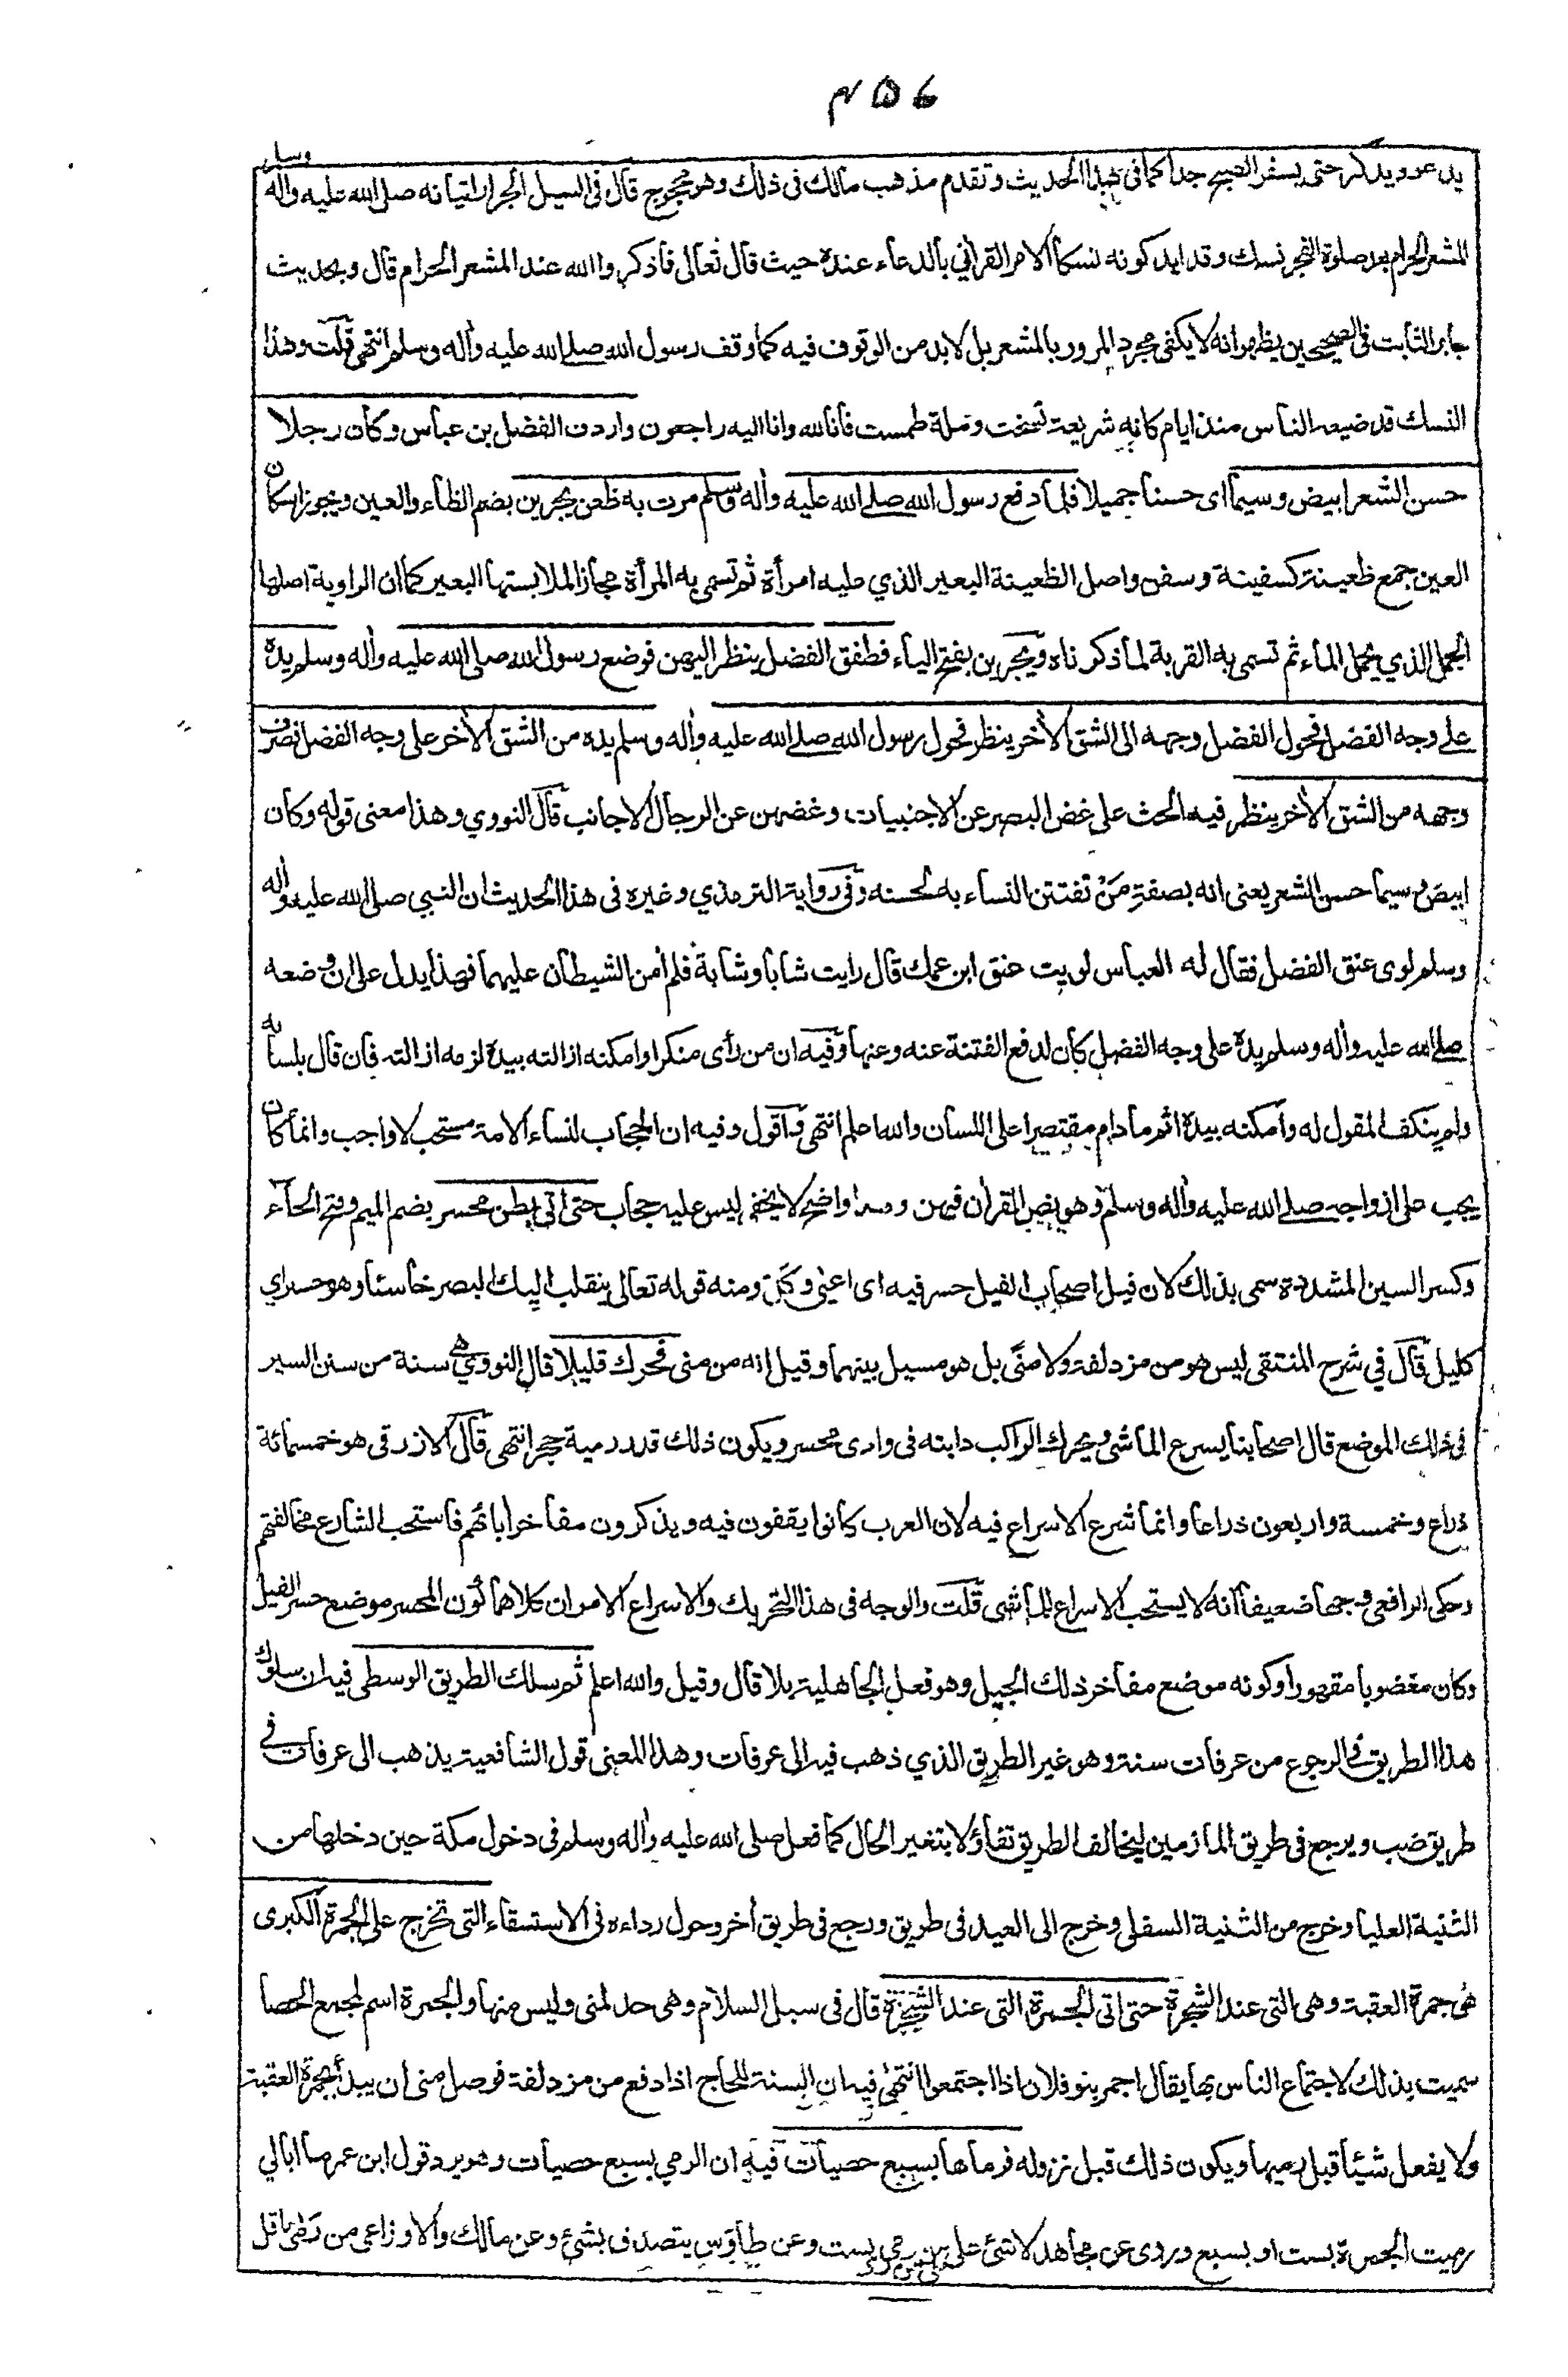 ۴۵۶
يدعو ويذكر حتى يسفر الصبح جدا كما في هذا الحديث وتقدم مذهب مالك في ذلك وهو محجوج قال في السيل الجرار اتيانه صلى الله عليه واله وسلم
المشعر الحرام بعد صلوة الفجر نسك وقد ايد كونه نسكا الامر القرأني بالدعاء عنده حيث قال تعالى فاذكروا الله عند المشعر الحرام قال وبحديث
جابر الثابت في الصحيحين يظهر انه لا يكفي مجرد المرور بالمشعر بل لا بد من الوقوف فيه كما وقف رسول الله صلى الله عليه واله وسلم انتهى قلت وهذا
النسك قد ضيعه الناس منذ ايام كانه شريعة نسخت وملة طمست فانا لله وانا اليه راجعون واردف الفضل بن عباس وكان رجلا
حسن الشعر ابيض وسيما اى حسنا جميلا فلما دفع رسول الله صلى الله عليه واله وسلم مرت به ظعن يجرين بضم الظاء والعين ويجوز اسكان
العين جمع ظعينة كسفينة وسفن واصل الظعينة البعير الذي عليه امرأة ثم تسمى به المرأة مجازا لملابستها البعير كما ان الراوية اصلها
الجمل الذي يحمل الماء ثم تسمى به القربة لما ذكرناه ويجرين بفتح الياء فطفق الفضل ينظر اليهن فوضع رسول الله صلى الله عليه واله وسلم يده
على وجه الفضل فحول الفضل وجهه الى الشق الأخر ينظر فحول رسول الله صلى الله عليه واله وسلم يده من الشق الأخر على وجه الفضل فصرف
وجهه من الشق الأخر ينظر فيه الحث على غض البصر عن الاجنبيات وغضهن عن الرجال الاجانب قال النووي وهذا معنى قوله وكان
ابيض وسيما حسن الشعر يعنى انه بصفة من تفتتن النساء به لحسنه وفي رواية الترمذي وغيره في هذا الحديث ان النبي صلى الله عليه واله
وسلم لوى عنق الفضل فقال له العباس لويت عنق ابن عمك قال رايت شابا وشابة فلم أمن الشيطان عليهما فهذا يدل على ان وضعه
صلى الله عليه واله وسلم يده على وجه الفضل كان لدفع الفتنة عنه وعنها وفيه ان من رأى منكرا وامكنه ازالته بيده لزمه ازالته فان قال بلسانه
ولم ينكف المقول له وامكنه بيده اثم ما دام مقتصرا على اللسان والله اعلم انتهى واقول وفيه ان الحجاب لنساء الامة مستحب لا واجب وانما كان
يجب على ازواجه صلى الله عليه واله وسلم وهو بنص القرأن فيهن وهذا واضح لا يخفى ليس عليه حجاب حتى اتى بطن محسر بضم الميم وفتح الحاء
وكسر السين المشددة سمى بذلك لان فيل اصحاب الفيل حسر فيه اى اعيى وكل ومنه قوله تعالى ينقلب اليك البصر خاسئا وهو حسير اي
كليل قال في شرح المنتقى ليس هو من مزدلفة ولا منى بل هو مسيل بينهما وقيل انه من منى فحرك قليلا قال النووي هي سنة من سنن السير
في ذلك الموضع قال اصحابنا يسرع الماشي ويحرك الراكب دابته في وادى محسر ويكون ذلك قدر رمية حجر انتهى قال الازرقي هو خمسمائة
ذراع وخمسة واربعون ذراعا وانما شرع الاسراع فيه لان العرب كانوا يقفون فيه ويذكرون مفاخر ابائهم فاستحب الشارع مخالفتهم
وحكى الرافعي وجها ضعيفا انه لا يستحب الاسراع للماشي قلت والوجه في هذا التحريك والاسراع الامران كلاهما كون المحسر موضع حسر الفيل
وكان مغضوبا مقهورا وكونه موضع مفاخر ذلك الجيل وهو فعل الجاهلية بلا قال وقيل والله اعلم ثم سلك الطريق الوسطى فيه ان سلوك
هذا الطريق في الرجوع من عرفات سنة وهو غير الطريق الذي ذهب فيه الى عرفات وهذا المعنى قول الشافعية يذهب الى عرفات في
طريق ضب ويرجع في طريق المازمين ليخالف الطريق تفاؤلا بتغير الحال كما فعل صلى الله عليه واله وسلم في دخول مكة حين دخلها من
الثنية العليا وخرج من الثنية السفلى وخرج الى العيد في طريق ورجع في طريق أخر وحول رداءه في الاستسقاء التى تخرج على الجمرة الكبرى
هي جمرة العقبة وهى التى عند الشجرة حتى اتى الجمرة التى عند الشجرة قال في سبل السلام وهى حد لمنى وليس منها والجمرة اسم لمجمع الحصا
سميت بذلك لاجتماع الناس بها يقال اجمر بنو فلان اذا اجتمعوا انتهى فيه ان السنة للحاج اذا دفع من مزدلفة فوصل منى ان يبدأ بجمرة العقبة
ولا يفعل شيئا قبل رميها ويكون ذلك قبل نزوله فرماها بسبع حصيات فيه ان الرمي بسبع حصيات وهو يرد قول ابن عمر ما ابالي
رميت الجمرة بست او بسبع وروى عن مجاهد لا شئ على من رمى بست وعن طاؤس يتصدق بشئ وعن مالك والاوزاعي من رمى باقل